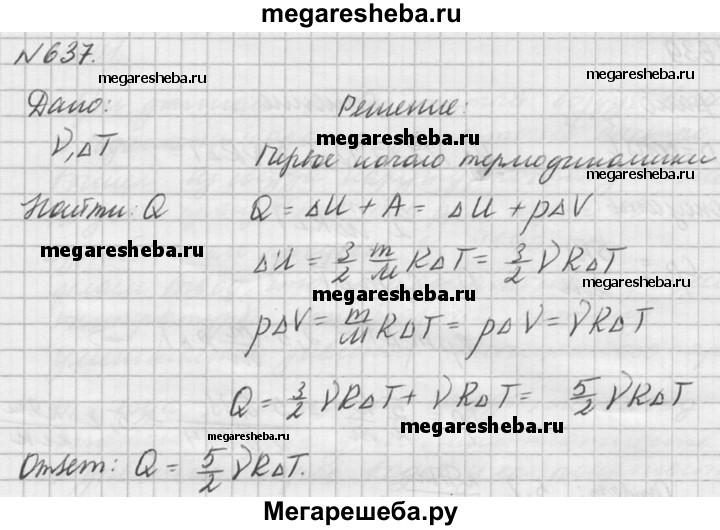 megaresheba.ru
№637.
megaresheba.ru
megaresheba.ru
Дано:
Решение:
megaresheba.ru
ν, ΔT
Первое начало термодинамики
Найти: Q
Q = ΔU + A = ΔU + pΔV
megaresheba.ru
ΔU = 3/2 m/M RΔT = 3/2 νRΔT
megaresheba.ru
megaresheba.ru
pΔV = m/M RΔT = pΔV = νRΔT
Q = 3/2 νRΔT + νRΔT = 5/2 νRΔT
megaresheba.ru
Ответ: Q = 5/2 νRΔT.
megaresheba.ru
Мегарешеба.ру